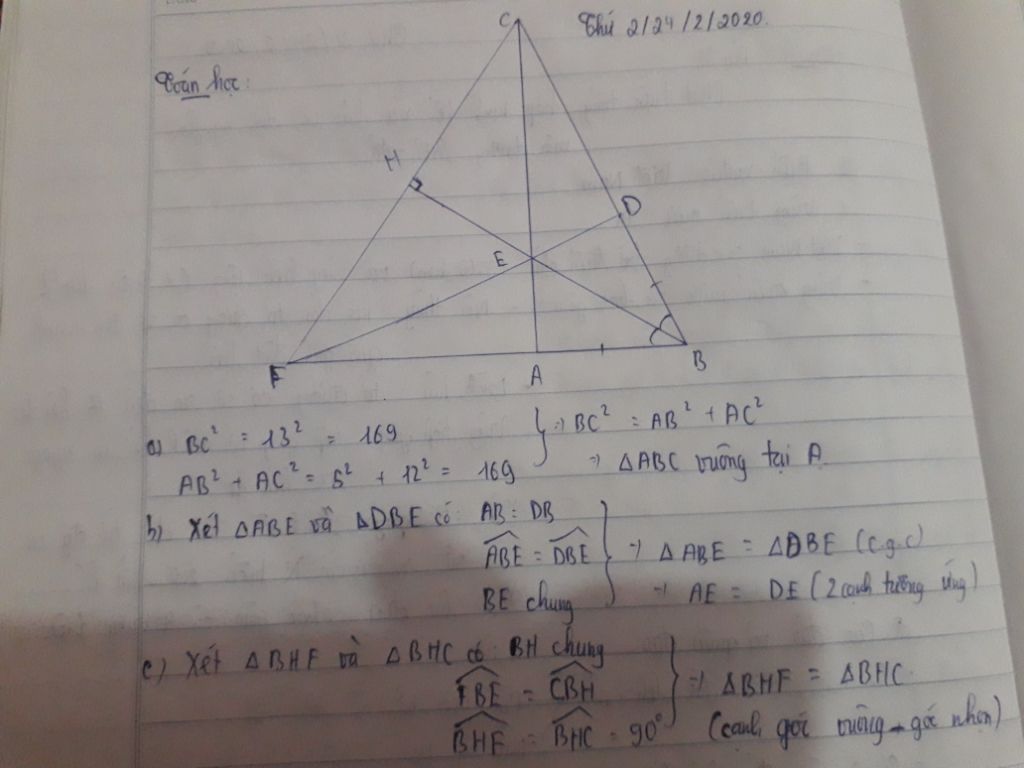 Thứ 2/24/2/2020.
Toán học:
C
H
D
E
F
A
B
a) BC² = 13² = 169
AB² + AC² = 5² + 12² = 169
} => BC² = AB² + AC²
=> ΔABC vuông tại A
b) Xét ΔABE và ΔDBE có AB = DB
ABE = DBE
BE chung
} => ΔABE = ΔDBE (c.g.c)
=> AE = DE (2 cạnh tương ứng)
c) Xét ΔBHF và ΔBHC có BH chung
FBE = CBH
BHF = BHC = 90°
} => ΔBHF = ΔBHC.
(cạnh góc vuông - góc nhọn)